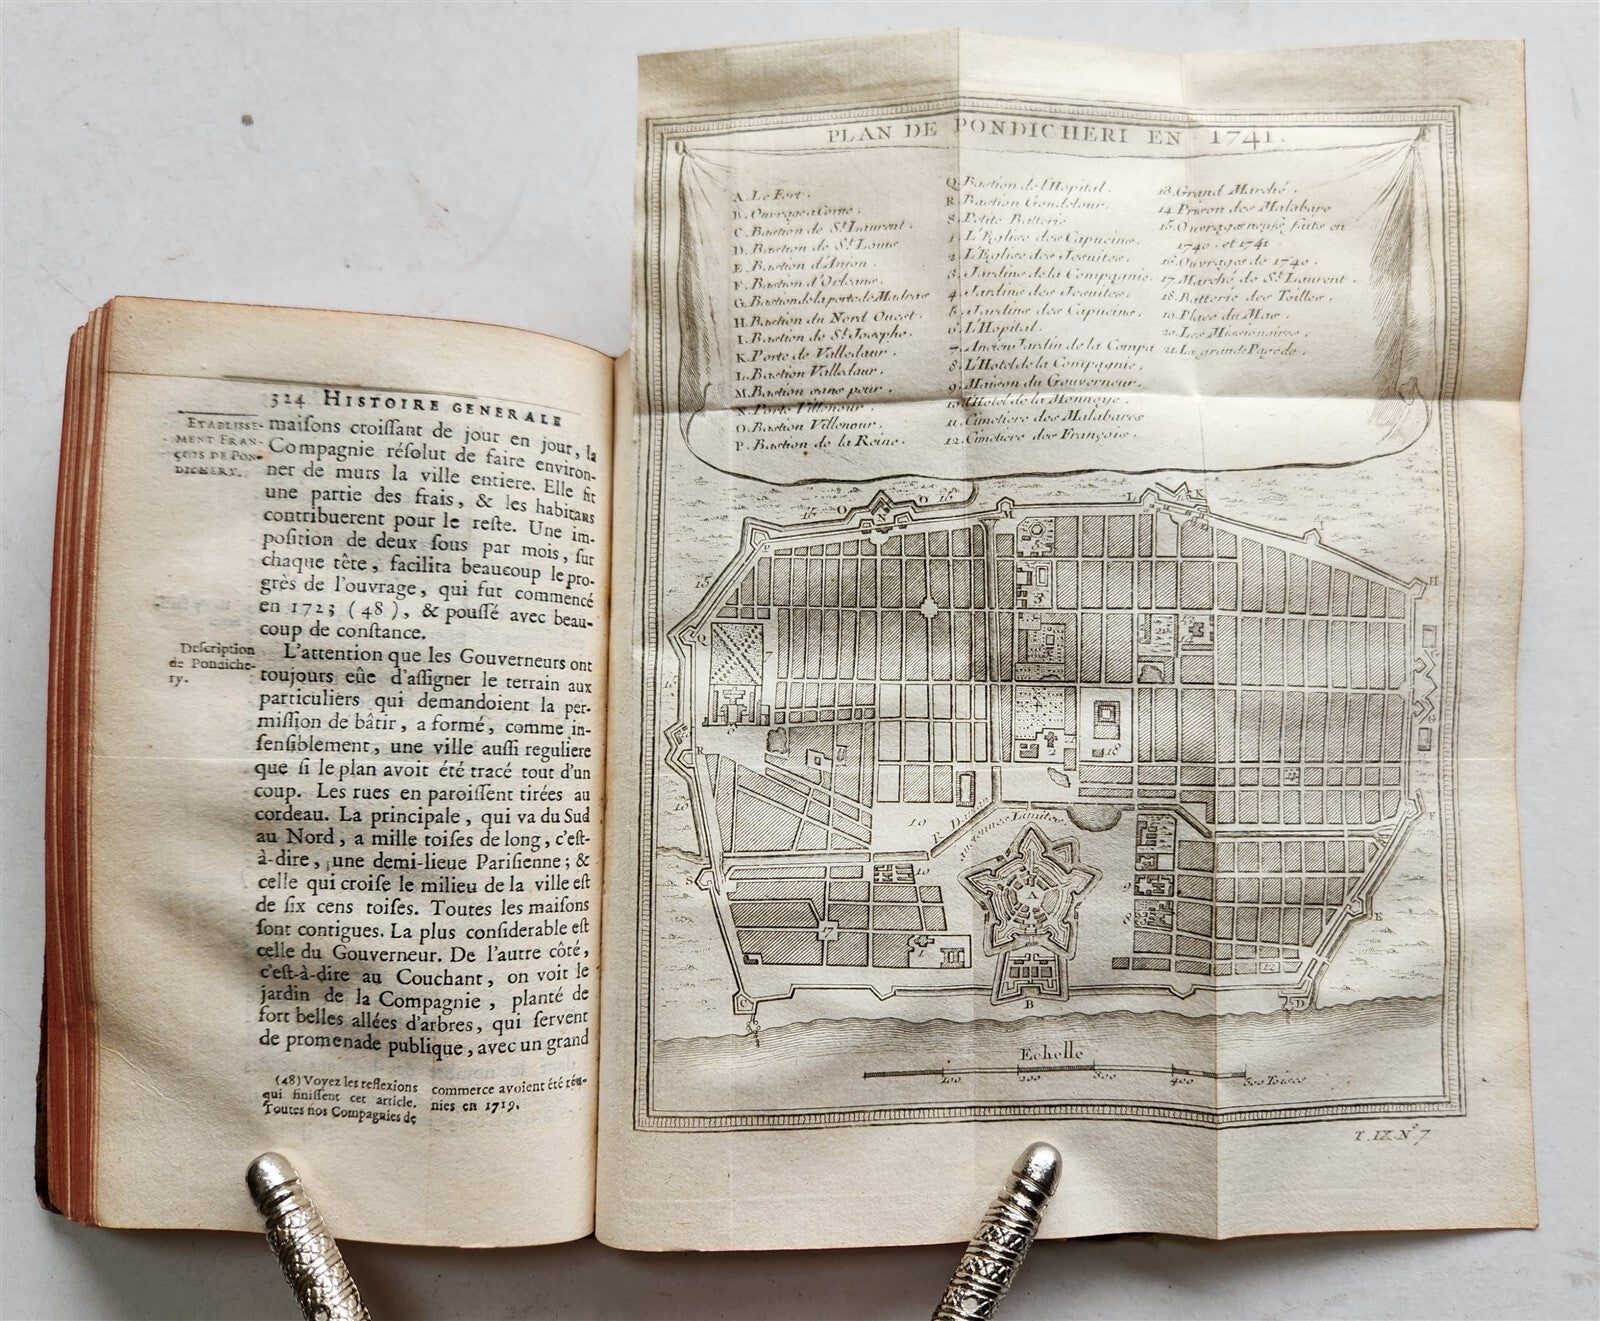 324 HISTOIRE GENERALE
ETABLISSE-
MENT FRAN-
ÇOIS DE PON-
DICHERY.
maisons croissant de jour en jour, la
Compagnie résolut de faire environ-
ner de murs la ville entiere. Elle fit
une partie des frais, & les habitans
contribuerent pour le reste. Une im-
position de deux sous par mois, sur
chaque tête, facilita beaucoup le pro-
grès de l'ouvrage, qui fut commencé
en 1723 (48), & poussé avec beau-
coup de constance.
Description
de Pondiche-
ry.
L'attention que les Gouverneurs ont
toujours eûe d'assigner le terrain aux
particuliers qui demandoient la per-
mission de bâtir, a formé, comme in-
sensiblement, une ville aussi reguliere
que si le plan avoit été tracé tout d'un
coup. Les rues en paroissent tirées au
cordeau. La principale, qui va du Sud
au Nord, a mille toises de long, c'est-
à-dire, une demi-lieue Parisienne; &
celle qui croise le milieu de la ville est
de six cens toises. Toutes les maisons
sont contigues. La plus considerable est
celle du Gouverneur. De l'autre côté,
c'est-à-dire au Couchant, on voit le
jardin de la Compagnie, planté de
fort belles allées d'arbres, qui servent
de promenade publique, avec un grand
(48) Voyez les reflexions
qui finissent cet article.
Toutes nos Compagnies de
commerce avoient été réu-
nies en 1719.
PLAN DE PONDICHERI EN 1741.
A. Le Fort.
B. Ouvrage a Corne.
C. Bastion de St. Laurent.
D. Bastion de St. Louis
E. Bastion d'Anjou.
F. Bastion d'Orleans.
G. Bastion de la porte de Madras
H. Bastion du Nord Ouest.
I. Bastion de St. Josephe.
K. Porte de Valledaur.
L. Bastion Valledaur.
M. Bastion sans peur.
N. Porte Villenour.
O. Bastion Villenour.
P. Bastion de la Reine.
Q. Bastion de l'Hopital.
R. Bastion Goudelour.
S. Petite Batterie
1. L'Eglise des Capucins.
2. L'Eglise des Jesuites.
3. Jardins de la Compagnie.
4. Jardins des Jesuites.
5. Jardins des Capucins.
6. L'Hopital.
7. Ancien Jardin de la Compa
8. L'Hotel de la Compagnie.
9. Maison du Gouverneur.
10. l'Hotel de la Monnoye.
11. Cimetiere des Malabares
12. Cimetiere des François.
13. Grand Marché.
14. Prison des Malabare
15. Ouvrages neufs, faits en
1740. et 1741
16. Ouvrages de 1740.
17. Marché de St. Laurent.
18. Batterie des Toilles.
19. Place du Mas.
20. Les Missionaires.
21. La grande Pagode.
Echelle
100 200 300 400 500 Toises
T. IX. N° 7